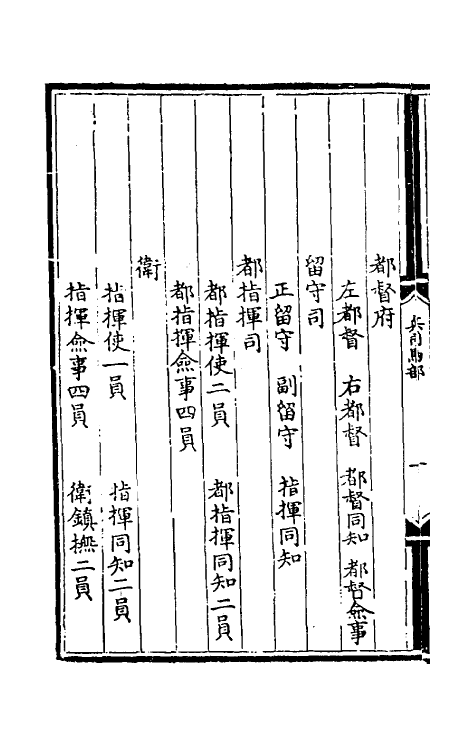 都督府
左都督　右都督　都督同知　都督僉事
留守司
正留守　副留守　指揮同知
都指揮司
都指揮使二員　都指揮同知二員
都指揮僉事四員
衛
指揮使一員　指揮同知二員
指揮僉事四員　衛鎮撫二員